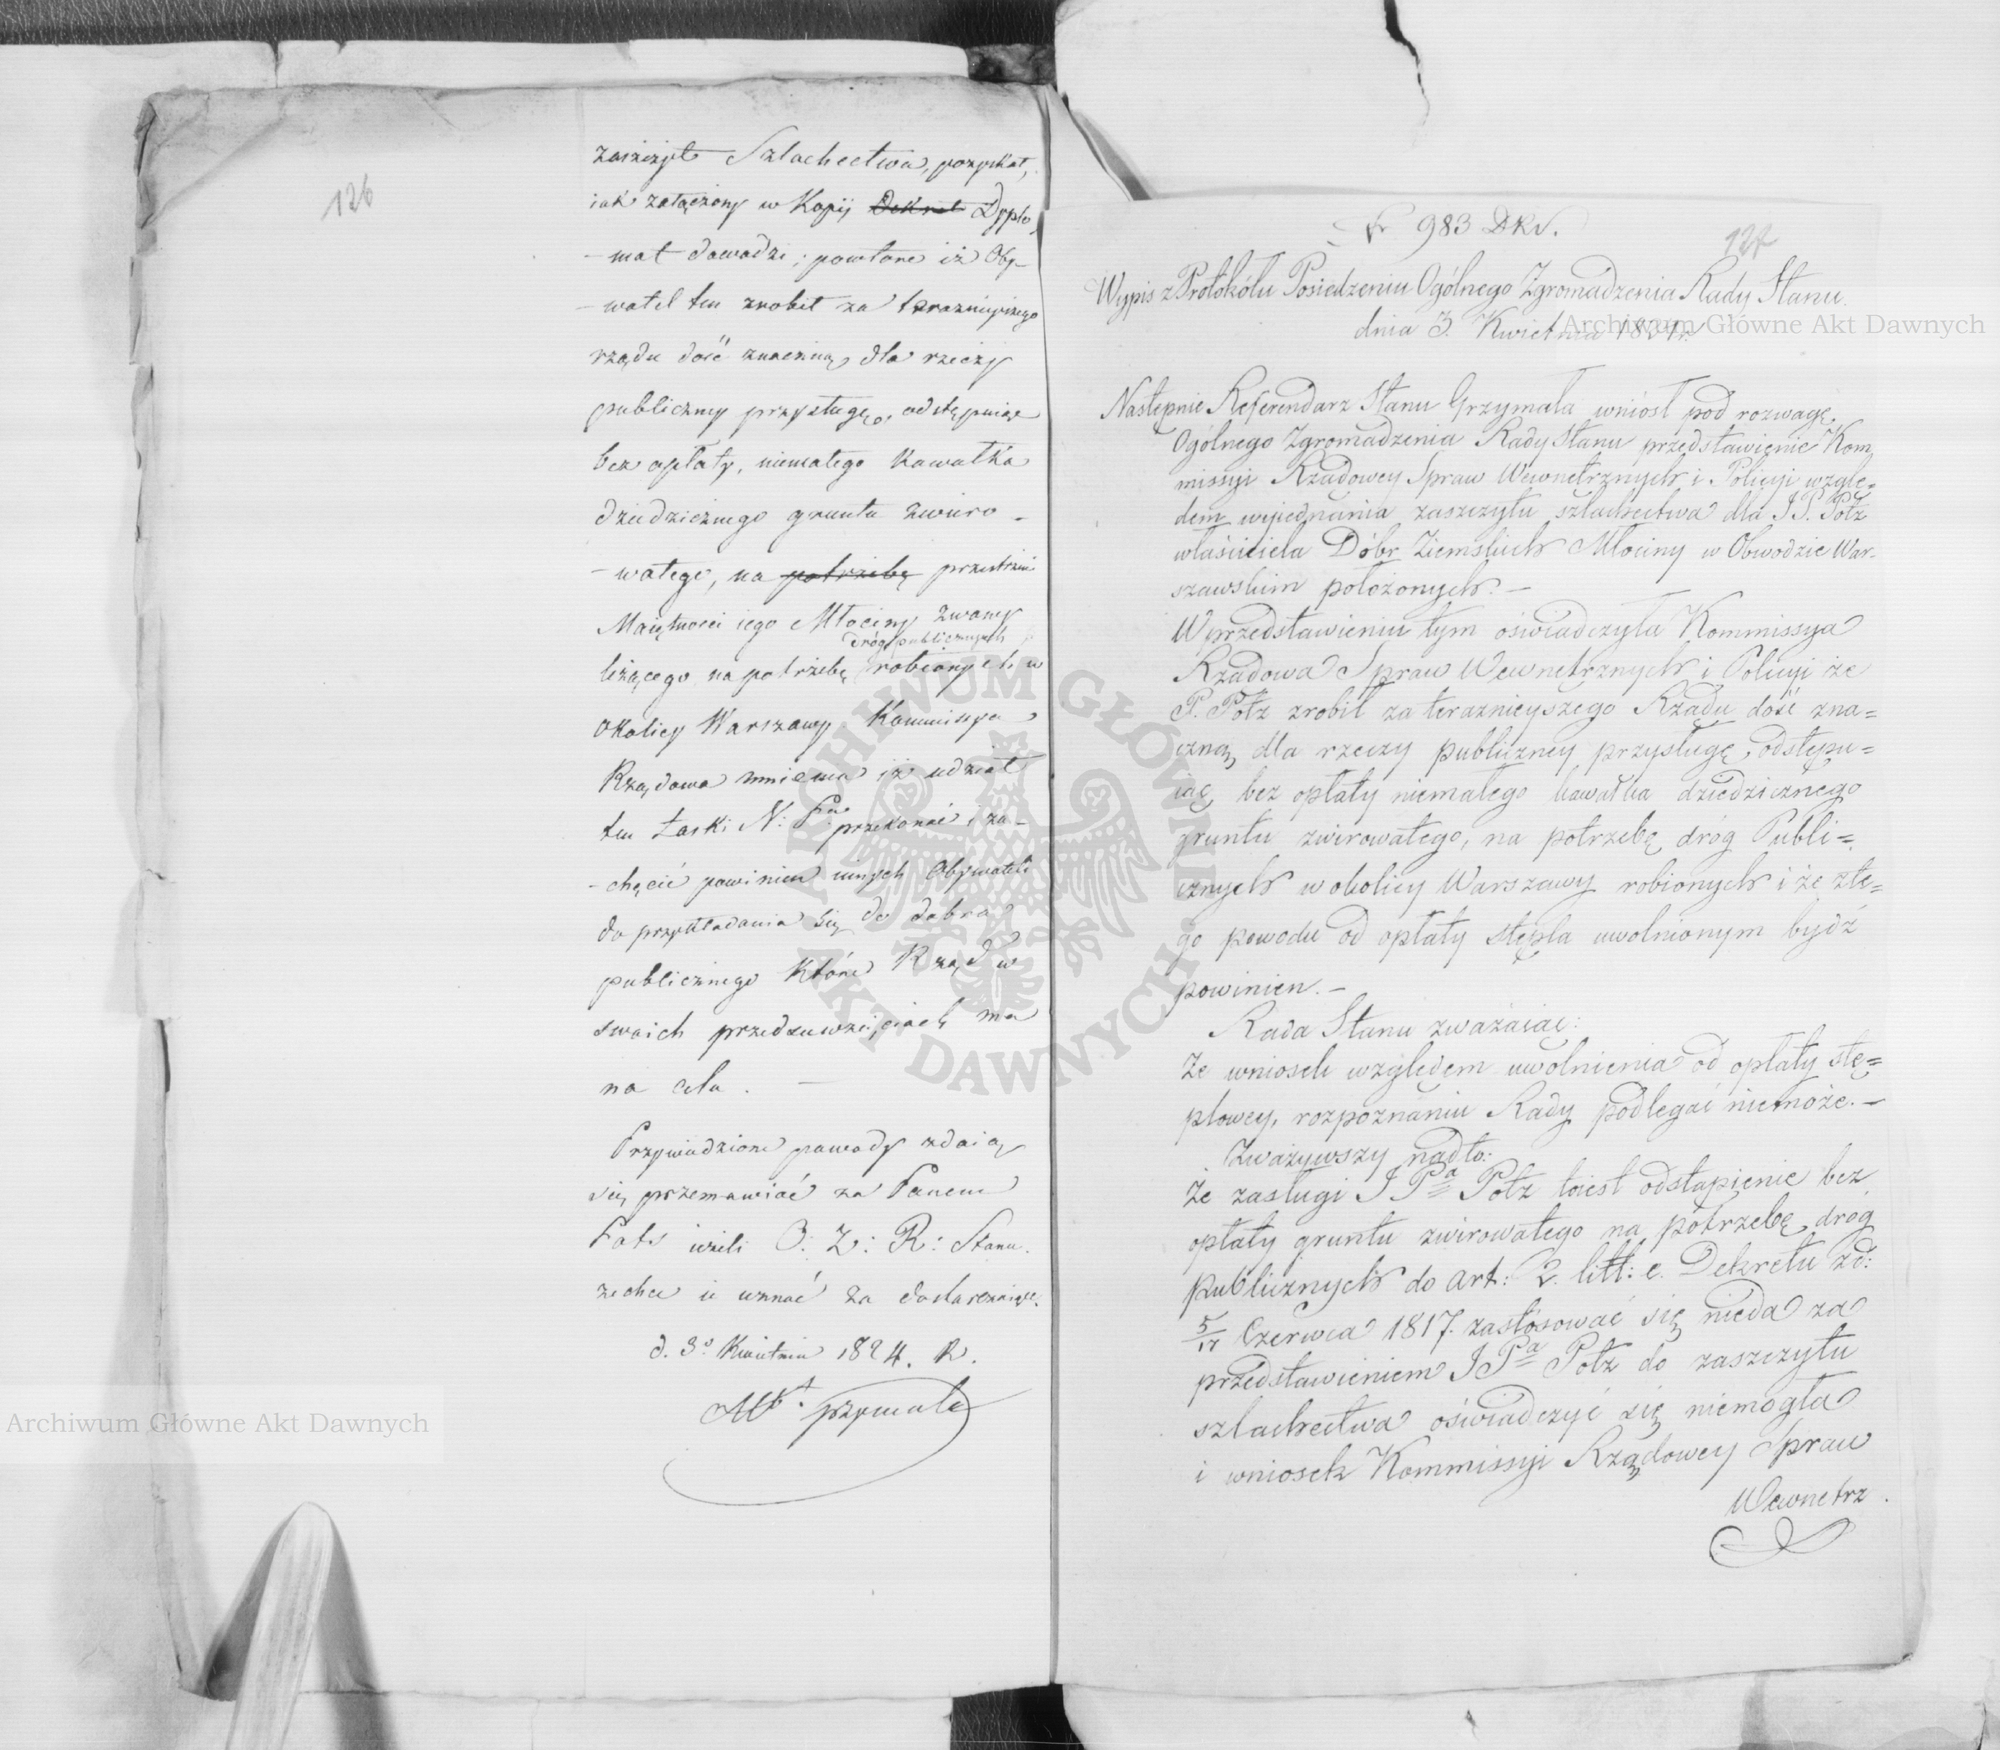 126
zaszczyt Szlachectwa, pozyskał,
iak załączony w Kopij Dekret Dyplo
- mat dowodzi; powtore iż Oby-
- watel ten zrobił za teraznieyszego
rządu dość znaczną dla rzeczy
publiczney przysługę, odstępuiąc
bez opłaty, niemałego kawałka
dziedzicznego gruntu zwiro -
- watego, na potrzebę przestrzeni
Maiętności iego Młociny zwaney
dróg publicznych
leżącego na potrzebę robionych w
okolicy Warszawy Kommissya
Rządowa mniema iż udział
ten Łaski N: Pa przekonać i za-
- chęcić powinien innych Obywateli
do przykładania się do dobra
publicznego które Rząd w
swoich przedsięwzięciach ma
na celu. —
Przywiedzione powody zdaią
się przemawiać za Panem
Potz ieżeli O: Z: R: Stanu
zechce ie uznać za dostateczne.
d. 3o Kwietnia 1824. R.
Grzymała
Nr 983 DKN.
127
Wypis z Protokółu Posiedzeniu Ogólnego Zgromadzenia Rady Stanu
dnia 3. Kwietnia 1824r.
Następnie Referendarz Stanu Grzymała wniósł pod rozwagę
Ogólnego Zgromadzenia Rady Stanu przedstawienie Kom
missyi Rządowey Spraw Wewnętrznych i Policyi wzglę=
dem wyiednania zaszczytu szlachectwa dla JP. Potz
właściciela Dóbr Ziemskich Młociny w Obwodzie War-
szawskim położonych. —
W przedstawieniu tym oświadczyła Kommissya
Rządowa Spraw Wewnętrznych i Policyi że
P. Potz zrobił za teraznieyszego Rządu dość zna=
czną dla rzeczy publiczney przysługę, odstępu=
iąc bez opłaty niemałego kawałka dziedzicznego
gruntu zwirowatego, na potrzebę dróg Publi=
cznych w okolicy Warszawy robionych i że z te=
go powodu od opłaty stępla uwolnionym bydź
powinien. —
Rada Stanu zważaiąc:
Że wniosek względem uwolnienia od opłaty stę=
plowey, rozpoznaniu Rady podlegać niemoże. —
Zważywszy nadto:
Że zasługi J Pa Potz toiest odstąpienie bez
opłaty gruntu zwirowatego na potrzebę dróg
publicznych do art: 2. litt: e. Dekretu zd:
5/17 Czerwca 1817. zastósować się nieda za
przedstawieniem J Pa Potz do zaszczytu
szlachectwa oświadczyć się niemogła
i wniosek Kommissyi Rządowey Spraw
Wewnetrz
Archiwum Główne Akt Dawnych
Archiwum Główne Akt Dawnych
ARCHIWUM GŁÓWNE AKT DAWNYCH